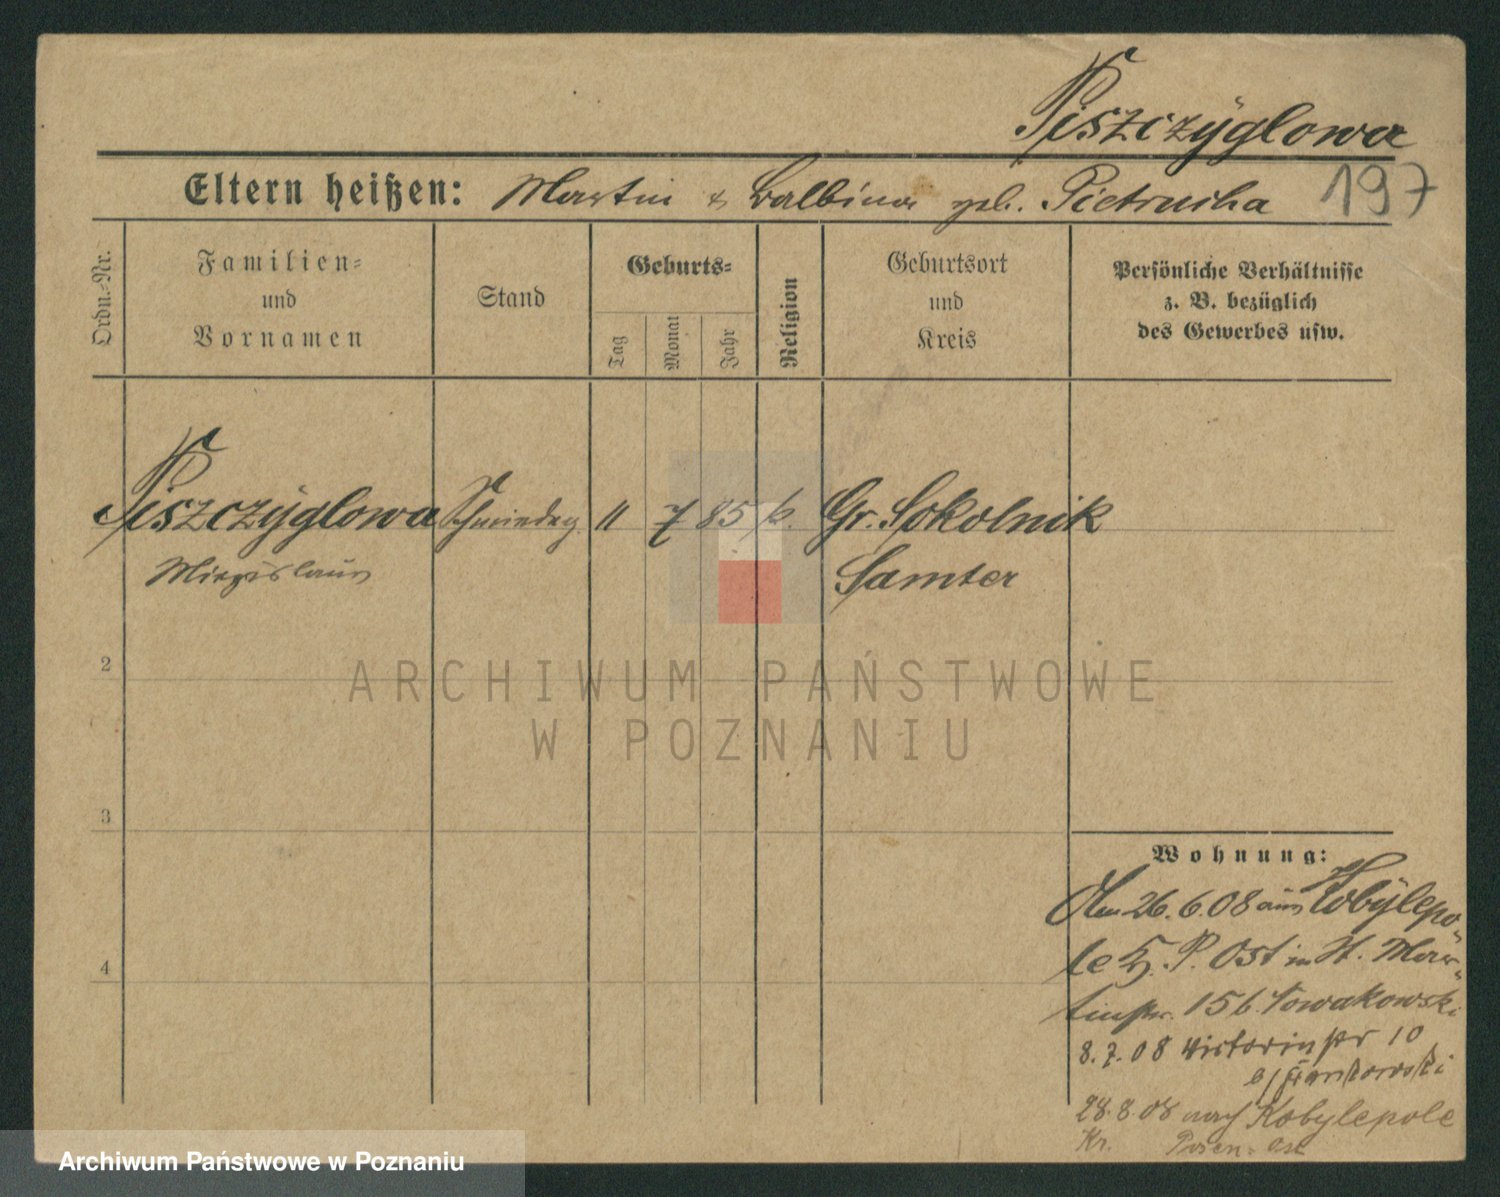 Piszczÿglowa
Eltern heißen: Martin & Balbina geb. Pietrucha
197
Ordn.-Nr.
Familien-
und
Vornamen
Stand
Geburts-
Tag
Monat
Jahr
Religion
Geburtsort
und
Kreis
Persönliche Verhältnisse
z. B. bezüglich
des Gewerbes usw.
Piszczÿglowa Schmiedeg. 11 7 85 k. Gr. Sokolnik
Miezislaus Samter
2
3
4
Wohnung:
Am 26.6.08 aus Kobÿlepo-
le K. P. Ost in St. Mar-
tinstr. 15 b. Nowakowski
8.7.08 Victoriastr 10
b/
28.8.08 nach Kobylepole
Kr. Posen-Ost
ARCHIWUM PAŃSTWOWE
W POZNANIU
Archiwum Państwowe w Poznaniu